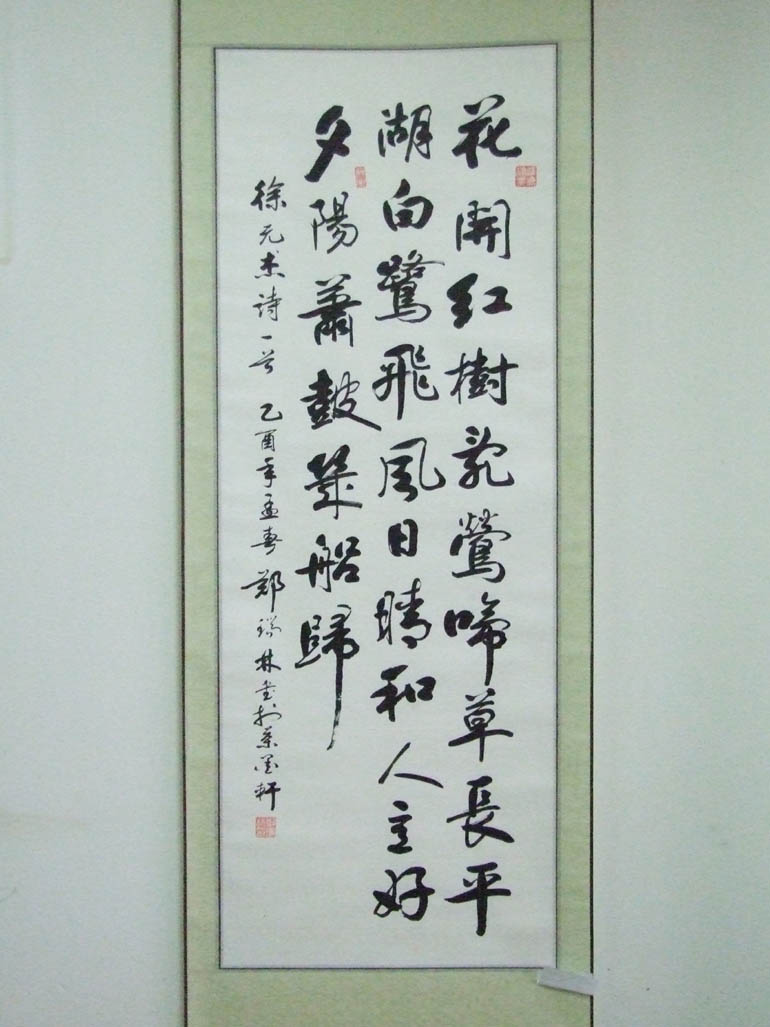 花開紅樹亂鶯啼草長平
湖白鷺飛風日晴和人意好
夕陽蕭鼓幾船歸
徐元杰詩一首 乙酉年孟春 鄭瑞林書於墨軒